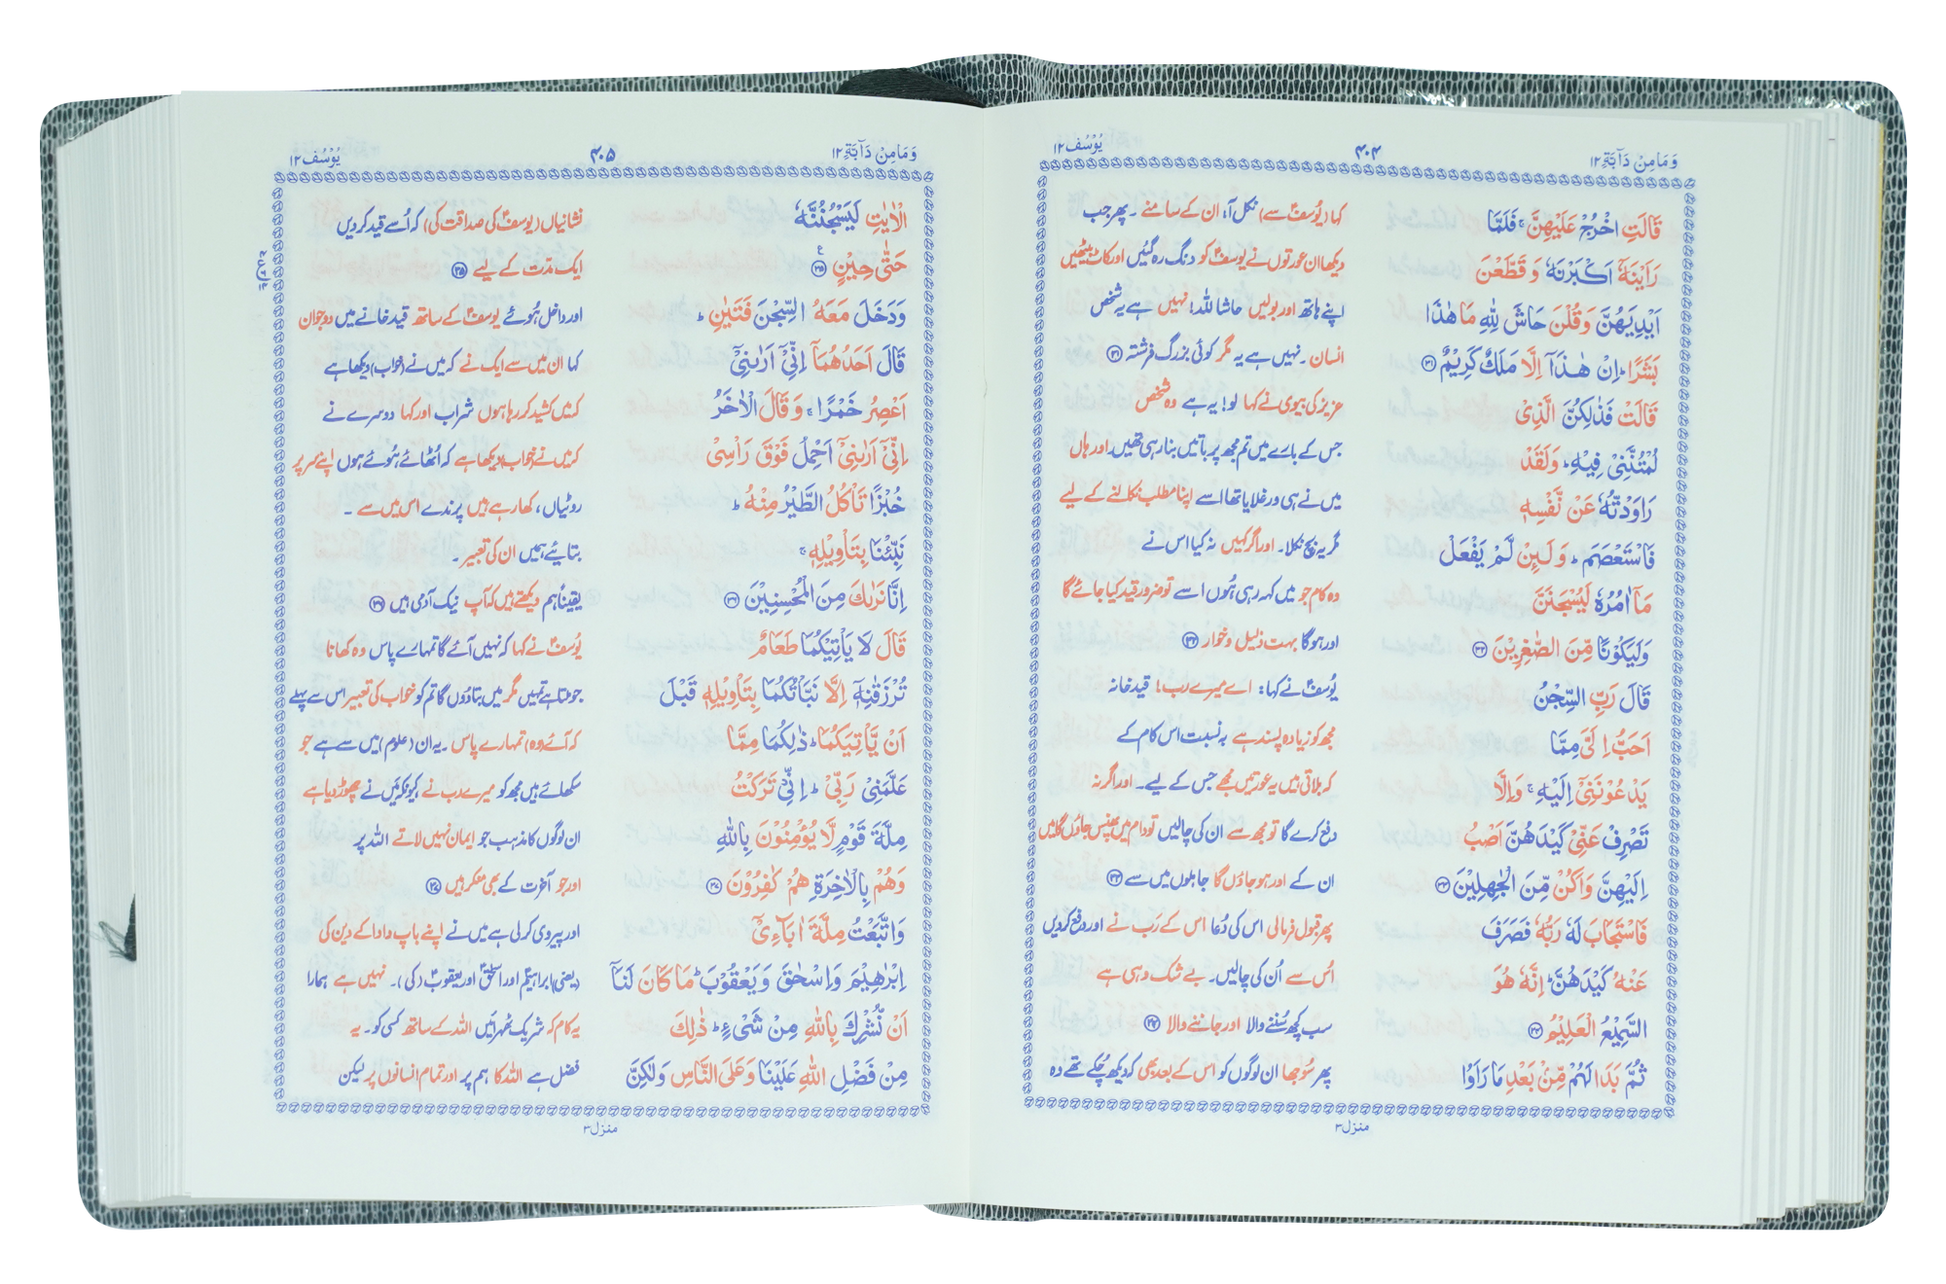 وَمَا مِنْ دَآبَّةٍ ۱۲ ۴۰۴ يُوْسُف ۱۲
قَالَتِ اخْرُجْ عَلَيْهِنَّ ۚ فَلَمَّا کہا (یُوسفؑ سے) نکل آ، ان کے سامنے ۔ پھر جب
رَاَيْنَهٗٓ اَكْبَرْنَهٗ وَقَطَّعْنَ دیکھا ان عورتوں نے یوسفؑ کو دنگ رہ گئیں اور کاٹ بیٹھیں
اَيْدِيَهُنَّ وَقُلْنَ حَاشَ لِلّٰهِ مَا هٰذَا اپنے ہاتھ اور بولیں حاشا للہ! نہیں ہے یہ شخص
بَشَرًا ؕ اِنْ هٰذَآ اِلَّا مَلَكٌ كَرِيْمٌ ۳۱ انسان ۔ نہیں ہے یہ مگر کوئی بزرگ فرشتہ ۳۱
قَالَتْ فَذٰلِكُنَّ الَّذِىْ عزیز کی بیوی نے کہا لو! یہ ہے وہ شخص
لُمْتُنَّنِىْ فِيْهِ ؕ وَلَقَدْ جس کے بارے میں تم مجھ پر باتیں بنا رہی تھیں اور ہاں
رَاوَدْتُّهٗ عَنْ نَّفْسِهٖ میں نے ہی ورغلایا تھا اسے اپنا مطلب نکالنے کے لیے
فَاسْتَعْصَمَ ؕ وَلَىِٕنْ لَّمْ يَفْعَلْ مگر یہ بچ نکلا۔ اور اگر کہیں نہ کیا اس نے
مَآ اٰمُرُهٗ لَيُسْجَنَنَّ وہ کام جو میں کہہ رہی ہُوں اسے تو ضرور قید کیا جائے گا
وَلَيَكُوْنًا مِّنَ الصّٰغِرِيْنَ ۳۲ اور ہو گا بہت ذلیل و خوار ۳۲
قَالَ رَبِّ السِّجْنُ یُوسفؑ نے کہا: اے میرے رب! قید خانہ
اَحَبُّ اِلَىَّ مِمَّا مجھ کو زیادہ پسند ہے بہ نسبت اس کام کے
يَدْعُوْنَنِىْٓ اِلَيْهِ ۚ وَاِلَّا کہ بلاتی ہیں یہ عورتیں مجھے جس کے لیے۔ اور اگر نہ
تَصْرِفْ عَنِّىْ كَيْدَهُنَّ اَصْبُ دفع کرے گا تو مجھ سے ان کی چالیں تو دام میں پھنس جاؤں گا میں
اِلَيْهِنَّ وَاَكُنْ مِّنَ الْجٰهِلِيْنَ ۳۳ ان کے اور ہو جاؤں گا جاہلوں میں سے ۳۳
فَاسْتَجَابَ لَهٗ رَبُّهٗ فَصَرَفَ پھر قبول فرمالی اس کی دُعا اس کے رَب نے اور دفع کر دیں
عَنْهُ كَيْدَهُنَّ ؕ اِنَّهٗ هُوَ اُس سے اُن کی چالیں۔ بے شک وہی ہے
السَّمِيْعُ الْعَلِيْمُ ۳۴ سب کچھ سُننے والا اور جاننے والا ۳۴
ثُمَّ بَدَا لَهُمْ مِّنْۢ بَعْدِ مَا رَاَوُا پھر سُوجھا ان لوگوں کو اس کے بعد بھی کہ دیکھ چکے تھے وہ
منزل ۳
وَمَا مِنْ دَآبَّةٍ ۱۲ ۴۰۵ يُوْسُف ۱۲
الْاٰيٰتِ لَيَسْجُنُنَّهٗ نشانیاں (یوسفؑ کی صداقت کی) کہ اُسے قید کر دیں
حَتّٰى حِيْنٍ ۳۵ ع ایک مدّت کے لیے ۳۵
وَدَخَلَ مَعَهُ السِّجْنَ فَتَيٰنِ ؕ اور داخل ہُوئے یوسفؑ کے ساتھ قید خانے میں دو جوان
قَالَ اَحَدُهُمَآ اِنِّىْٓ اَرٰىنِىْٓ کہا ان میں سے ایک نے کہ میں نے (خواب) دیکھا ہے
اَعْصِرُ خَمْرًا ۚ وَقَالَ الْاٰخَرُ کہ میں کشید کر رہا ہوں شراب اور کہا دوسرے نے
اِنِّىْٓ اَرٰىنِىْٓ اَحْمِلُ فَوْقَ رَاْسِىْ کہ میں نے خواب دیکھا ہے کہ اُٹھائے ہُوئے ہوں اپنے سر پر
خُبْزًا تَاْكُلُ الطَّيْرُ مِنْهُ ؕ روٹیاں، کھا رہے ہیں پرندے اس میں سے ۔
نَبِّئْنَا بِتَاْوِيْلِهٖ ۚ بتائیے ہمیں ان کی تعبیر ۔
اِنَّا نَرٰىكَ مِنَ الْمُحْسِنِيْنَ ۳۶ یقیناً ہم دیکھتے ہیں کہ آپ نیک آدمی ہیں ۳۶
قَالَ لَا يَاْتِيْكُمَا طَعَامٌ یُوسفؑ نے کہا کہ نہیں آئے گا تمہارے پاس وہ کھانا
تُرْزَقٰنِهٖٓ اِلَّا نَبَّاْتُكُمَا بِتَاْوِيْلِهٖ قَبْلَ جو ملتا ہے تمہیں مگر میں بتا دُوں گا تم کو خواب کی تعبیر اس سے پہلے
اَنْ يَّاْتِيَكُمَا ؕ ذٰلِكُمَا مِمَّا کہ آئے (وہ) تمہارے پاس ۔ یہ ان (علوم) میں سے ہے جو
عَلَّمَنِىْ رَبِّىْ ؕ اِنِّىْ تَرَكْتُ سکھائے ہیں مجھ کو میرے رب نے کیونکہ میں نے چھوڑ دیا ہے
مِلَّةَ قَوْمٍ لَّا يُؤْمِنُوْنَ بِاللّٰهِ ان لوگوں کا مذہب جو ایمان نہیں لاتے اللہ پر
وَهُمْ بِالْاٰخِرَةِ هُمْ كٰفِرُوْنَ ۳۷ اور جو آخرت کے بھی منکر ہیں ۳۷
وَاتَّبَعْتُ مِلَّةَ اٰبَآءِىْٓ اور پیروی کر لی ہے میں نے اپنے باپ دادا کے دین کی
اِبْرٰهِيْمَ وَاِسْحٰقَ وَيَعْقُوْبَ ؕ مَا كَانَ لَنَآ (یعنی) ابراہیمؑ اور اسحٰقؑ اور یعقوبؑ (کی)۔ نہیں ہے ہمارا
اَنْ نُّشْرِكَ بِاللّٰهِ مِنْ شَىْءٍ ؕ ذٰلِكَ یہ کام کہ شریک ٹھہرائیں اللہ کے ساتھ کسی کو۔ یہ
مِنْ فَضْلِ اللّٰهِ عَلَيْنَا وَعَلَى النَّاسِ وَلٰكِنَّ فضل ہے اللہ کا ہم پر اور تمام انسانوں پر لیکن
منزل ۳